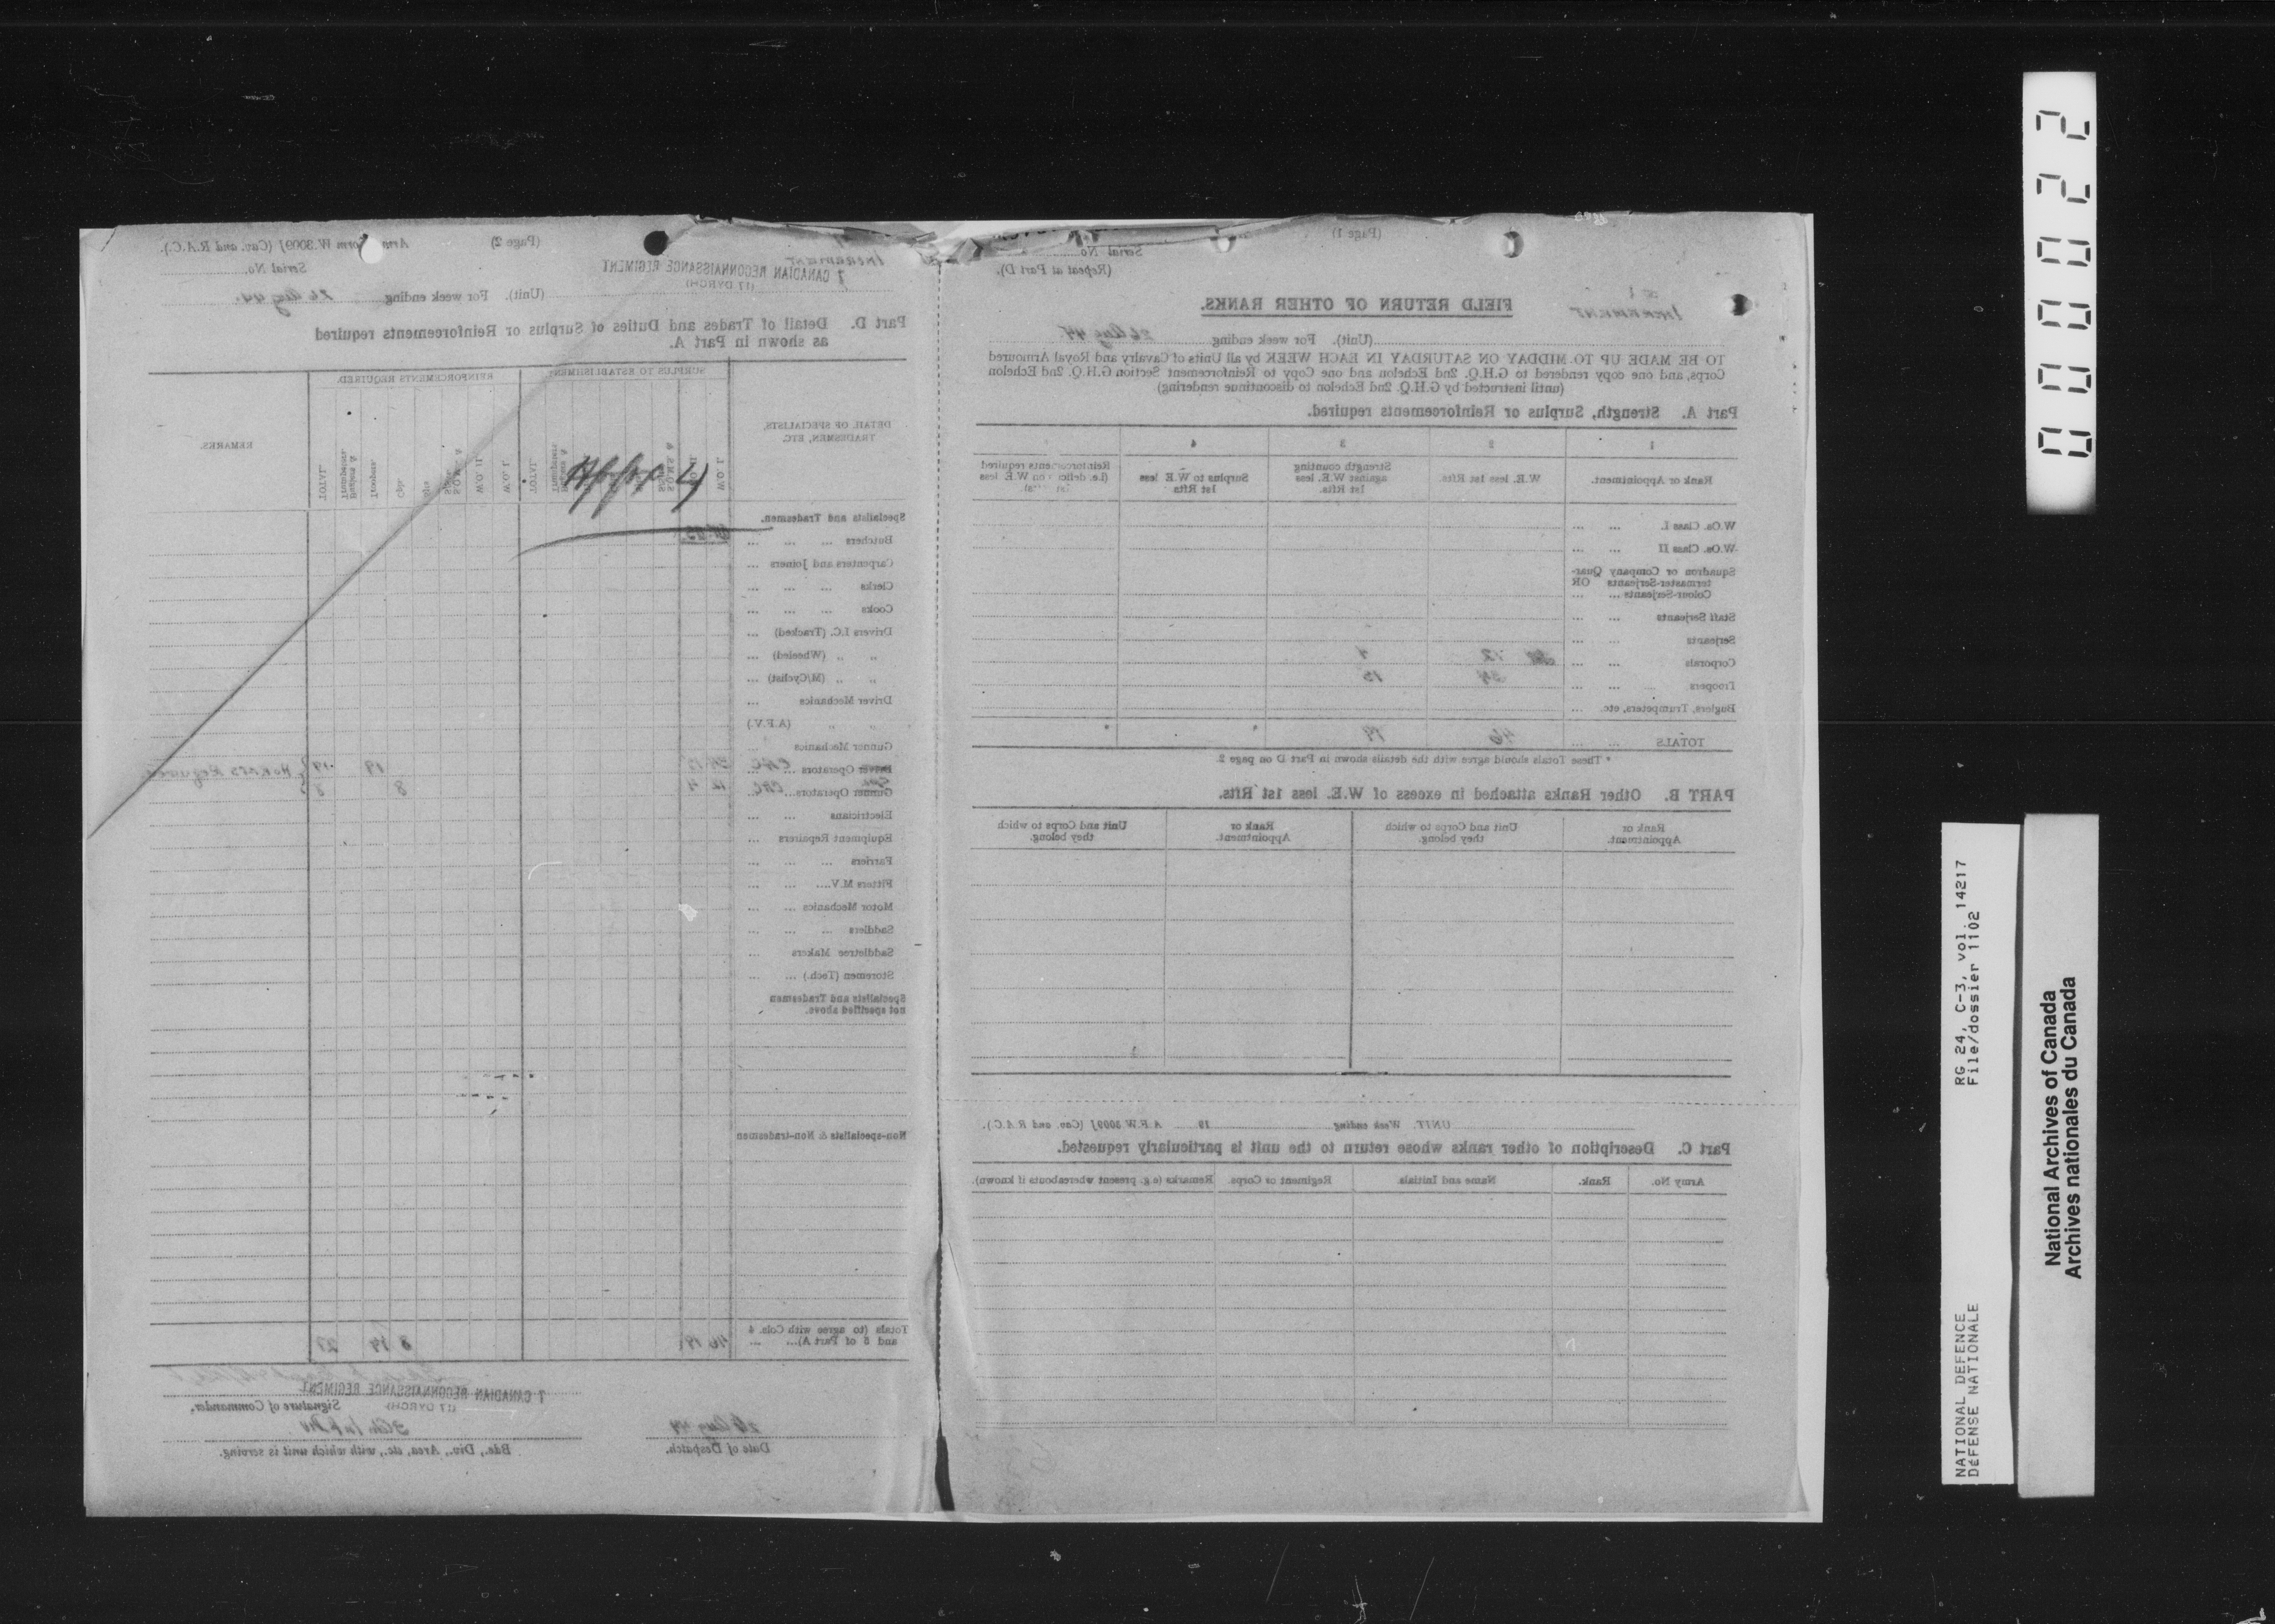 (Page 1)
Serial No.
(Repeat at Part D).
Increment
FIELD RETURN OF OTHER RANKS.
(Unit). For week ending 26 Aug 44
TO BE MADE UP TO MIDDAY ON SATURDAY IN EACH WEEK by all Units of Cavalry and Royal Armoured
Corps, and one copy rendered to G.H.Q. 2nd Echelon and one Copy to Reinforcement Section G.H.Q. 2nd Echelon
(until instructed by G.H.Q. 2nd Echelon to discontinue rendering)
Part A. Strength, Surplus or Reinforcements required.
1 2 3 4
Rank or Appointment. W.E. less 1st Rfts. Strength counting against W.E. less 1st Rfts. Surplus to W.E. less 1st Rfts Reinforcements required (i.e. deficit on W.E. less
W.Os. Class I. ... ...
W.Os. Class II ... ...
Squadron or Company Quar-
termaster-Serjeants OR
Colour-Serjeants ... ...
Staff Serjeants ... ...
Serjeants ... ...
Corporals ... ... 12 4
Troopers ... ... 34 15
Buglers, Trumpeters, etc. ...
TOTALS ... ... 46 19 * *
* These Totals should agree with the details shown in Part D on page 2.
PART B. Other Ranks attached in excess of W.E. less 1st Rfts.
Rank or Appointment. Unit and Corps to which they belong. Rank or Appointment. Unit and Corps to which they belong.
UNIT. Week ending 19 A.F.W. 3009J (Cav. and R.A.C.).
Part C. Description of other ranks whose return to the unit is particularly requested.
Army No. Rank. Name and Initials. Regiment or Corps. Remarks (e.g. present whereabouts if known).
(Page 2) Army Form W. 3009J (Cav. and R.A.C.).
Increment
7 CANADIAN RECONNAISSANCE REGIMENT
(17 DYRCH)
Serial No.
(Unit). For week ending 26 Aug 44.
Part D. Detail of Trades and Duties of Surplus or Reinforcements required
as shown in Part A.
DETAIL OF SPECIALISTS, TRADESMEN, ETC. SURPLUS TO ESTABLISHMENT REINFORCEMENTS REQUIRED. REMARKS
W.O. I. W.O. II. S.Q.M.S. & TOTAL. W.O. I. W.O. II. S.Q.M.S. & Sjts. Cpls. Troopers. Buglers & Trumpeters TOTAL.
Specialists and Tradesmen.
Butchers ... ... ...
Carpenters and Joiners ...
Clerks ... ... ...
Cooks ... ... ...
Drivers I.C. (Tracked) ...
,, ,, (Wheeled) ...
,, ,, (M/Cyclist) ...
Driver Mechanics ...
,, ,, (A.F.V.)
Gunner Mechanics ...
Driver Operators ... CAC 34 15 19 19 } No RATS Required
Gunner Operators ... CAC 12 4 8 8
Electricians ... ...
Equipment Repairers ...
Farriers ... ... ...
Fitters M.V. ... ... ...
Motor Mechanics ... ...
Saddlers ... ... ...
Saddletree Makers ...
Storemen (Tech.) ... ...
Specialists and Tradesmen
not specified above.
Non-specialists & Non-tradesmen
Totals (to agree with Cols. 4
and 5 of Part A) ... ... 46 19 8 19 27
7 CANADIAN RECONNAISSANCE REGIMENT
(17 DYRCH)
Signature of Commander.
26 Aug 44
Date of Despatch.
3 Cdn Inf Div
Bde., Div., Area, etc., with which unit is serving.
000022
RG 24, C-3, vol. 14217
File/dossier 1102
NATIONAL DEFENCE
DÉFENSE NATIONALE
National Archives of Canada
Archives nationales du Canada